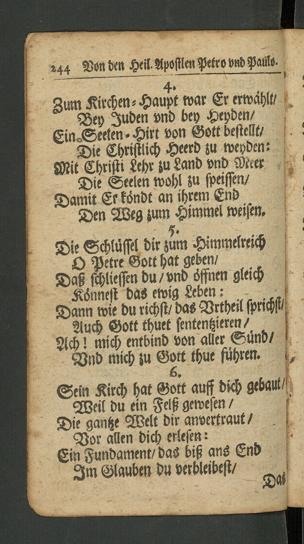 244 Von den Heil. Apostlen Petro vnd Paulo.
4.
Zum Kirchen-Haupt war Er erwählt/
Bey Juden vnd bey Heyden/
Ein Seelen-Hirt von Gott bestellt/
Die Christlich Heerd zu weyden:
Mit Christi Lehr zu Land vnd Meer
Die Seelen wohl zu speissen/
Damit Er köndt an ihrem End
Den Weg zum Himmel weisen.
5.
Die Schlüssel dir zum Himmelreich
O Petre Gott hat geben/
Daß schliessen du/ vnd öffnen gleich
Könnest das ewig Leben:
Dann wie du richst/ das Vrtheil sprichst/
Auch Gott thuet sentenzieren/
Ach! mich entbind von aller Sünd/
Vnd mich zu Gott thue führen.
6.
Sein Kirch hat Gott auff dich gebaut/
Weil du ein Felß gewesen/
Die gantze Welt dir anvertraut/
Vor allen dich erlesen:
Ein Fundament/ das biß ans End
Im Glauben du verbleibest/
Das